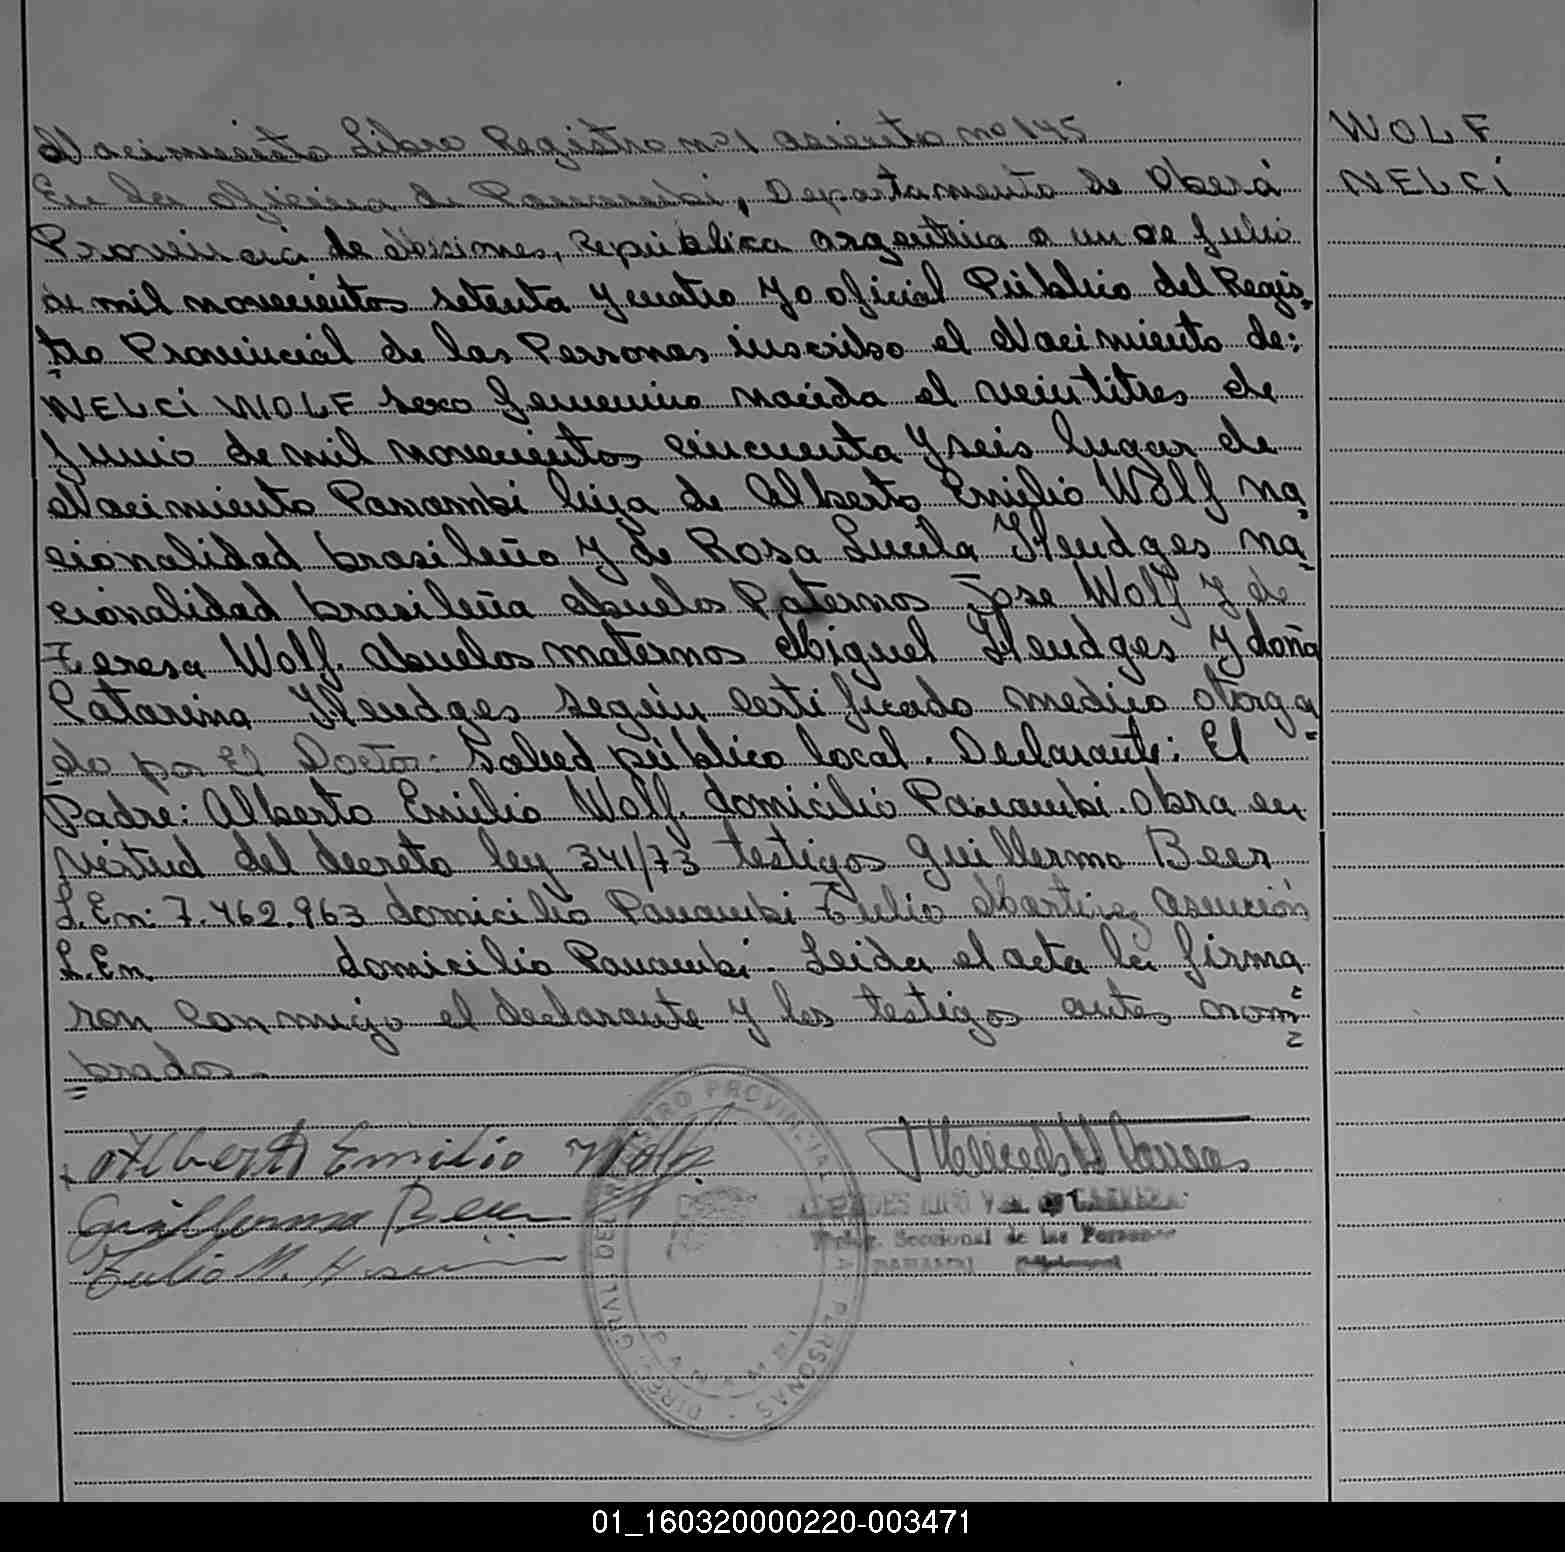 Nacimiento Libro Registro nº 1 asiento nº 145
WOLF
NELCI
En la oficina de Panambi, Departamento de Oberá
Provincia de Misiones, República argentina a un de Julio
de mil novecientos setenta y cuatro yo oficial Público del Regis-
tro Provincial de las Personas inscribo el Nacimiento de:
NELCI WOLF sexo femenino nacida el veintitres de
Junio de mil novecientos cincuenta y seis lugar de
Nacimiento Panambi hija de Alberto Emilio Wolf na-
cionalidad brasileño y de Rosa Lucila Hendges na-
cionalidad brasileña abuelos Paternos Jose Wolf y de
Teresa Wolf. abuelos maternos Miguel Hendges y doña
Catarina Hendges según certificado medico otorga-
do por El Doctor: Salud público local. Declarante: El
Padre: Alberto Emilio Wolf. domicilio Panambi. obra en
virtud del decreto ley 341/73 testigos Guillermo Beer
L.En: 7.462.963 domicilio Panambi Tulio Martires asunción
L.En. domicilio Panambi. Leida el acta la firma
ron conmigo el declarante y los testigos antes nom=
brados.
Alberto Emilio Wolf
Guillermo Beer
Tulio M.
Seccional de las Personas
DIREC. GRAL. DEL REGISTRO PROVINCIAL DE LAS PERSONAS
01_160320000220-003471